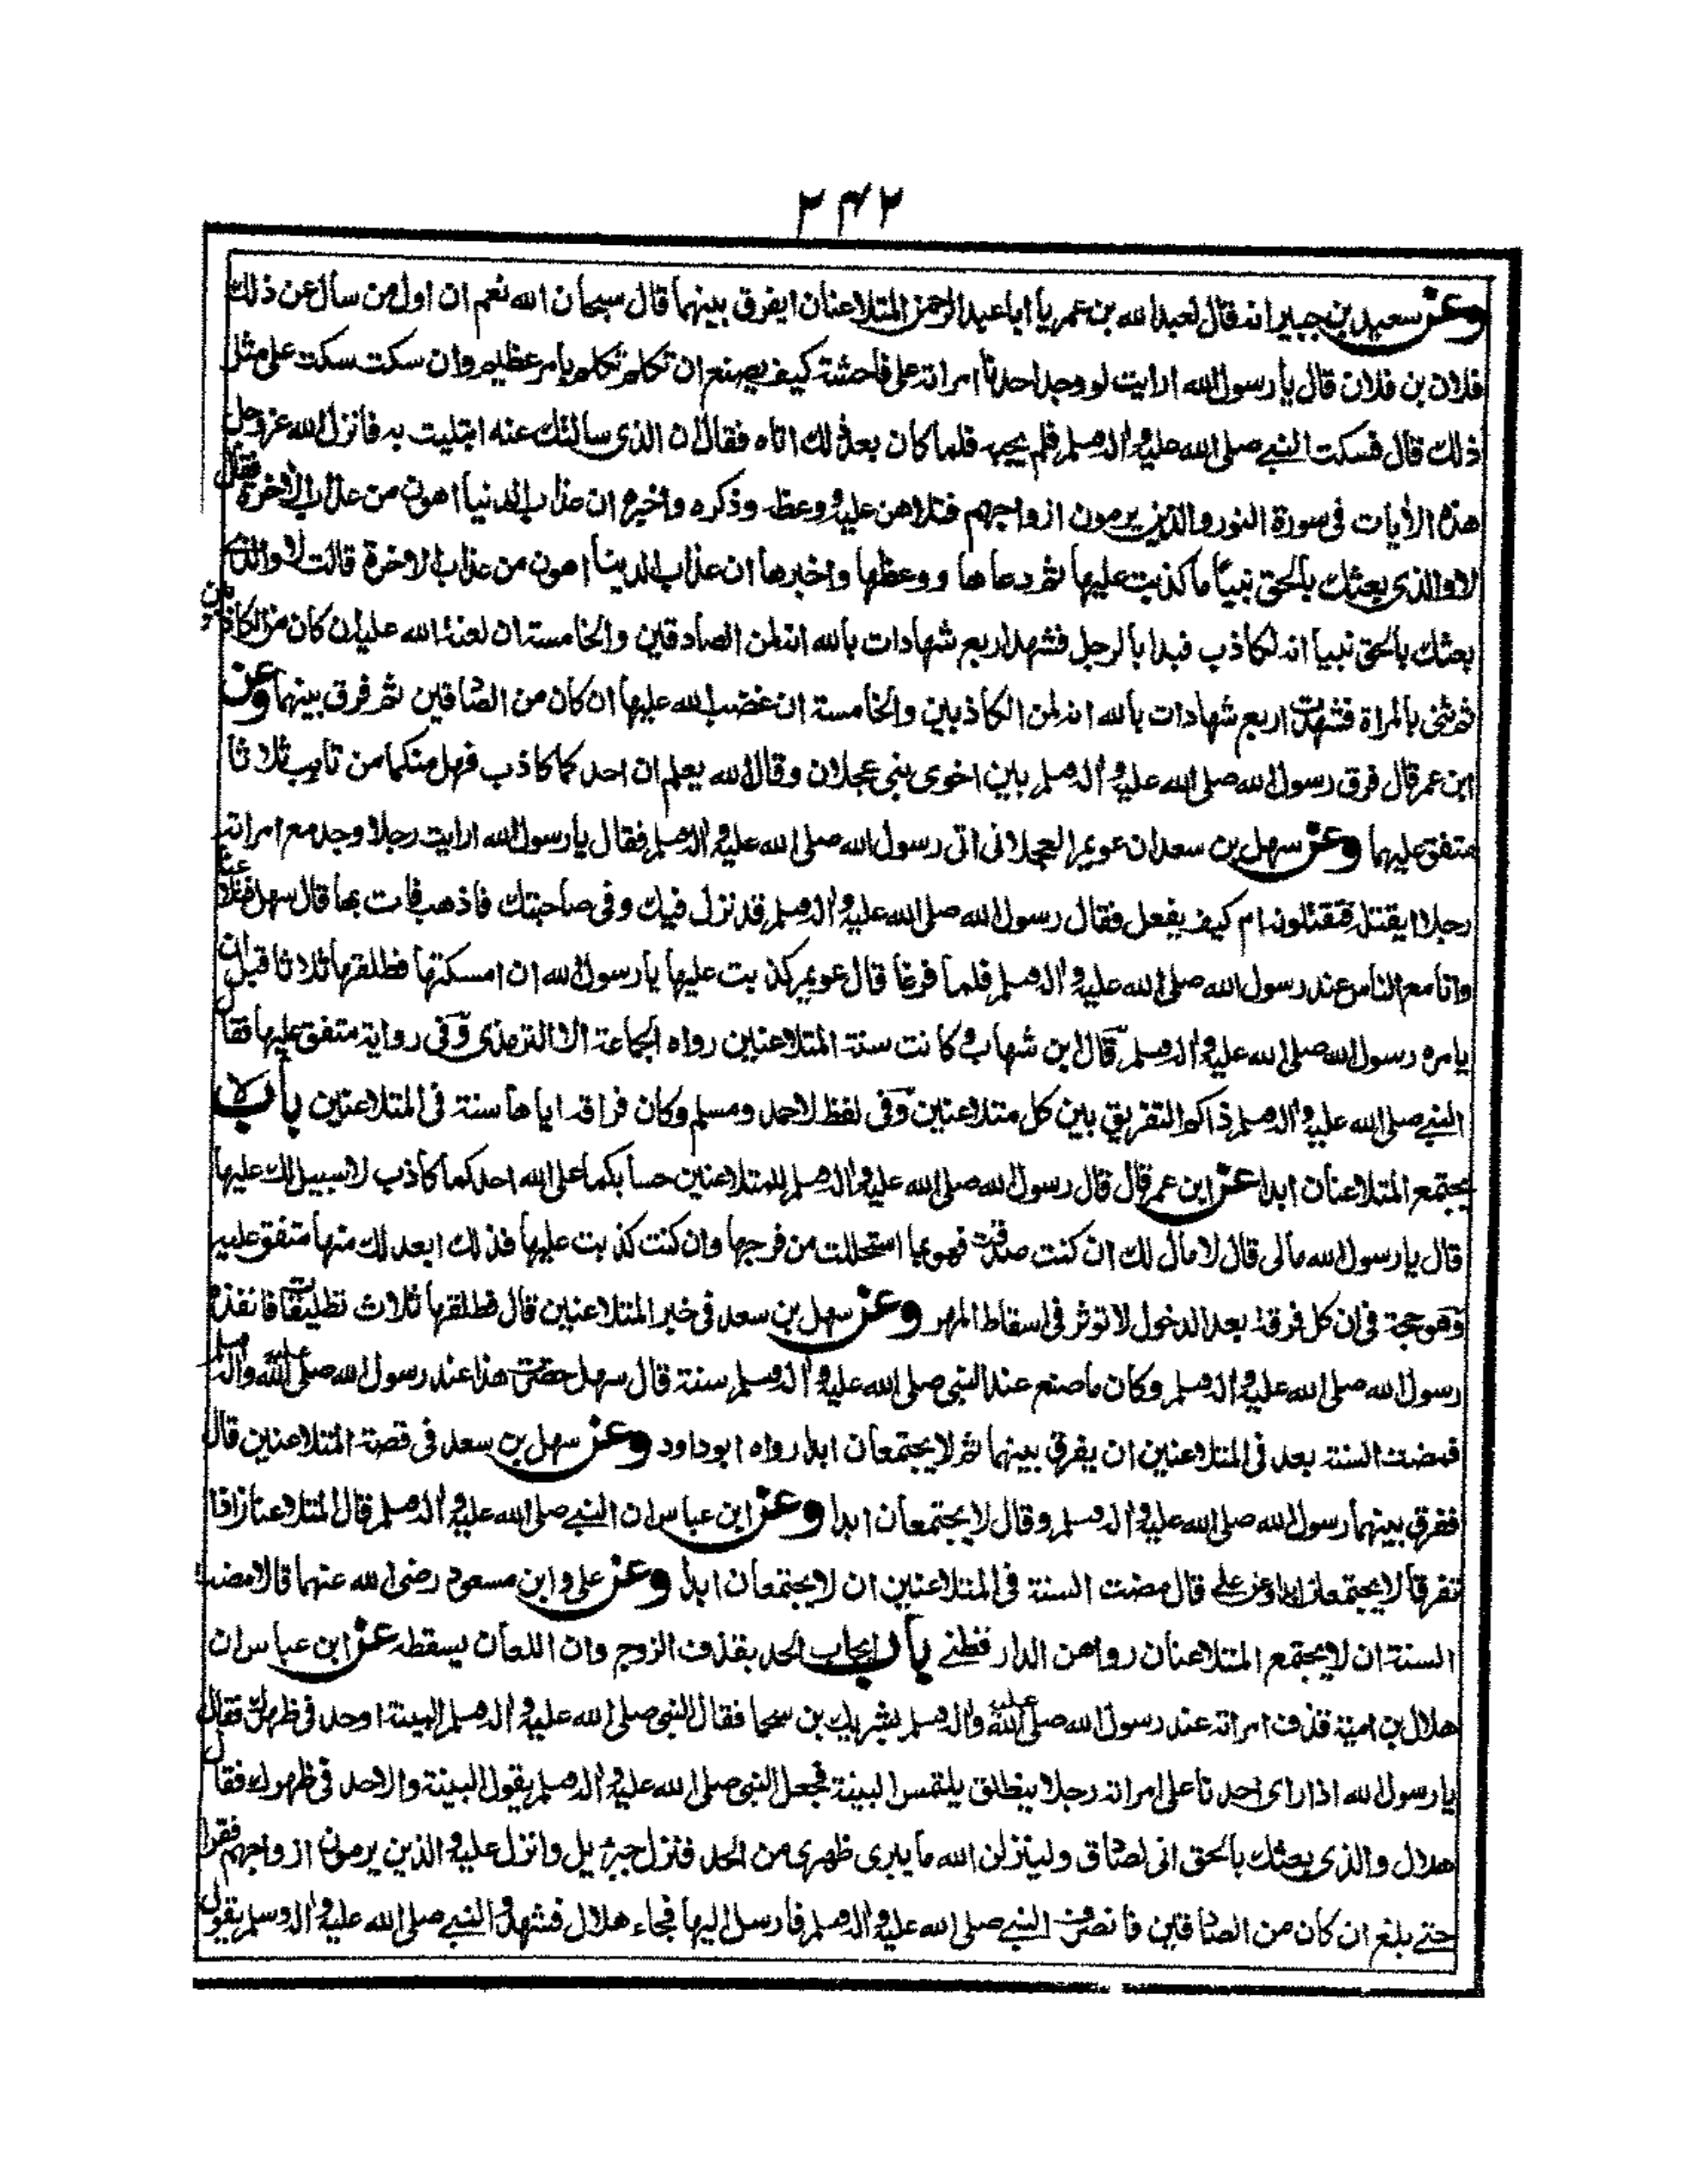 ٢٤٢
وعن سعيد بن جبير انه قال لعبد الله بن عمر يا ابا عبد الرحمن المتلاعنان ايفرق بينهما قال سبحان الله نعم ان اول من سأل عن ذلك
فلان بن فلان قال يا رسول الله ارايت لو وجد احدنا امراته على فاحشة كيف يصنع ان تكلم تكلم بامر عظيم وان سكت سكت على مثل
ذلك قال فسكت النبي صلى الله عليه واله وسلم فلم يجبه فلما كان بعد ذلك اتاه فقال ان الذى سالتك عنه ابتليت به فانزل الله عز وجل
هذه الأيات فى سورة النور والذين يرمون ازواجهم فتلاهن عليه ووعظه وذكره واخبره ان عذاب الدنيا اهون من عذاب الأخرة فقال
لا والذى بعثك بالحق نبيا ما كذبت عليها ثم دعاها ووعظها واخبرها ان عذاب الدنيا اهون من عذاب الاخرة قالت لا والذى
بعثك بالحق نبيا انه لكاذب فبدا بالرجل فشهد اربع شهادات بالله انه لمن الصادقين والخامسة ان لعنة الله عليه ان كان من الكاذبين
ثم ثنى بالمراة فشهدت اربع شهادات بالله انه لمن الكاذبين والخامسة ان غضب الله عليها ان كان من الصادقين ثم فرق بينهما وعن
ابن عمر قال فرق رسول الله صلى الله عليه واله وسلم بين اخوى بنى عجلان وقال الله يعلم ان احدكما كاذب فهل منكما من تايب ثلاثا
متفق عليهما وعن سهل بن سعد ان عويمر العجلانى اتى رسول الله صلى الله عليه واله وسلم فقال يا رسول الله ارايت رجلا وجد مع امراته
رجلا ايقتله فتقتلونه ام كيف يفعل فقال رسول الله صلى الله عليه واله وسلم قد نزل فيك وفى صاحبتك فاذهب فات بها قال سهل فتلاعنا
وانا مع الناس عند رسول الله صلى الله عليه واله وسلم فلما فرغا قال عويمر كذبت عليها يا رسول الله ان امسكتها فطلقها ثلاثا قبل ان
يامره رسول الله صلى الله عليه واله وسلم قال ابن شهاب وكانت سنة المتلاعنين رواه الجماعة الا الترمذى وفى رواية متفق عليها فقال
النبي صلى الله عليه واله وسلم ذاكم التفريق بين كل متلاعنين وفى لفظ لاحمد ومسلم وكان فراقه اياها سنة فى المتلاعنين باب لا
يجتمع المتلاعنان ابدا عن ابن عمر قال قال رسول الله صلى الله عليه واله وسلم للمتلاعنين حسابكما على الله احدكما كاذب لا سبيل لك عليها
قال يا رسول الله مالى قال لا مال لك ان كنت صدقت فهو بما استحللت من فرجها وان كنت كذبت عليها فذلك ابعد لك منها متفق عليه
وهو حجة فى ان كل فرقة بعد الدخول لا توثر فى اسقاط المهر وعن سهل بن سعد فى خبر المتلاعنين قال فطلقها ثلاث تطليقات فانفذه
رسول الله صلى الله عليه واله وسلم وكان ما صنع عند النبى صلى الله عليه واله وسلم سنة قال سهل حضرت هذا عند رسول الله صلى الله عليه واله وسلم
فمضت السنة بعد فى المتلاعنين ان يفرق بينهما ثم لا يجتمعان ابدا رواه ابو داود وعن سهل بن سعد فى قصة المتلاعنين قال
ففرق بينهما رسول الله صلى الله عليه واله وسلم وقال لا يجتمعان ابدا وعن ابن عباس ان النبي صلى الله عليه واله وسلم قال المتلاعنان اذا
تفرقا لا يجتمعان ابدا وعن على قال مضت السنة فى المتلاعنين ان لا يجتمعان ابدا وعن على وابن مسعود رضى الله عنهما قالا مضت
السنة ان لا يجتمع المتلاعنان رواهن الدارقطنے باب ايجاب الحد بقذف الزوج وان اللعان يسقطه عن ابن عباس ان
هلال بن امية قذف امراته عند رسول الله صلى الله عليه واله وسلم بشريك بن سحما فقال النبى صلى الله عليه واله وسلم البينة او حد فى ظهرك فقال
يا رسول الله اذا راى احدنا على امراته رجلا ينطلق يلتمس البينة فجعل النبى صلى الله عليه واله وسلم يقول البينة والا حد فى ظهرك فقال
هلال والذى بعثك بالحق انى لصادق ولينزلن الله ما يبرى ظهرى من الحد فنزل جبرئيل وانزل عليه والذين يرمون ازواجهم فقرا
حتے بلغ ان كان من الصادقين فانصرف النبي صلى الله عليه واله وسلم فارسل اليها فجاء هلال فشهد والنبي صلى الله عليه واله وسلم يقول